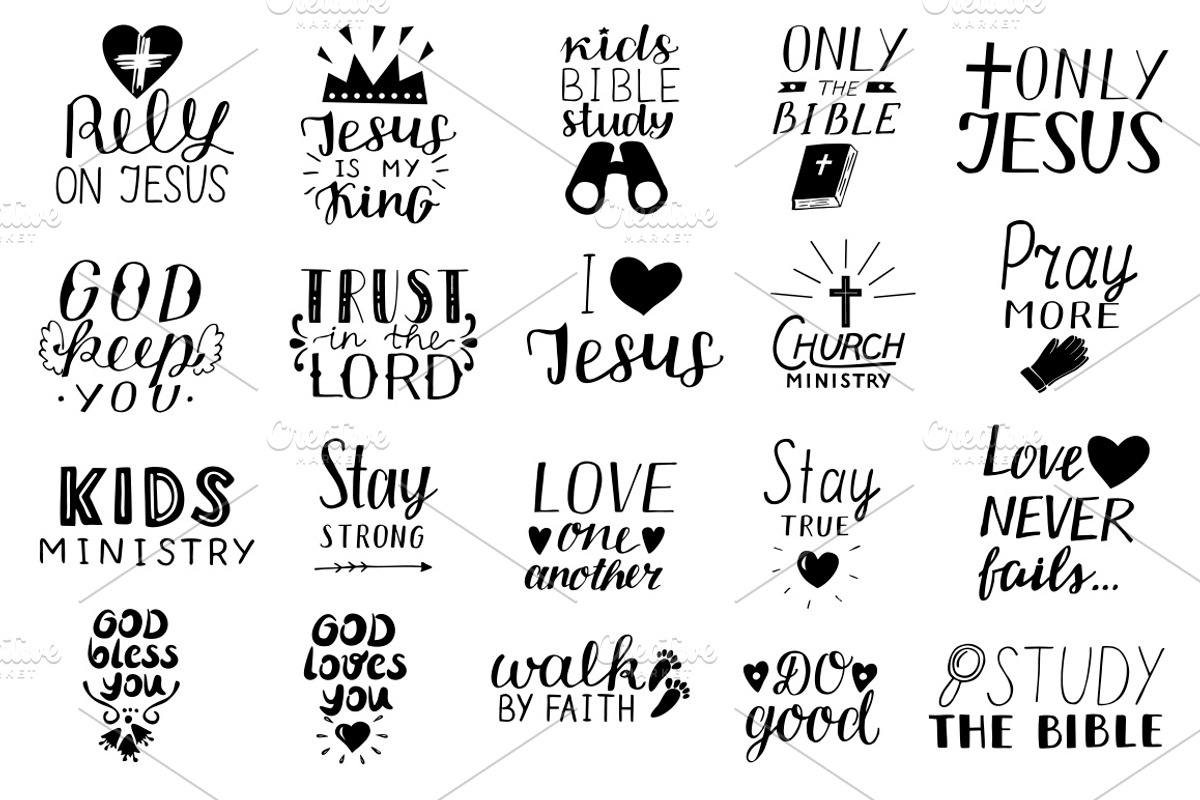 Rely
ON JESUS
Jesus
IS MY
King
kids
BIBLE
study
ONLY
THE
BIBLE
ONLY
JESUS
GOD
keep
·YOU·
TRUST
in the
LORD
I
Jesus
CHURCH
MINISTRY
Pray
MORE
KIDS
MINISTRY
Stay
STRONG
LOVE
one
another
Stay
TRUE
Love
NEVER
fails...
GOD
bless
you
GOD
loves
you
walk
BY FAITH
DO
good
STUDY
THE BIBLE
Creative
MARKET
Creative
MARKET
Creative
MARKET
Creative
MARKET
Creative
MARKET
Creative
MARKET
Creative
MARKET